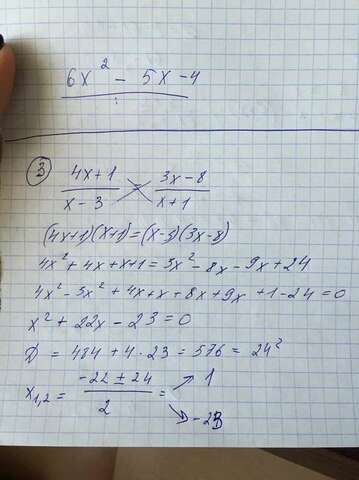 6x² - 5x - 4
③ (4x+1)/(x-3) = (3x-8)/(x+1)
(4x+1)(x+1)=(x-3)(3x-8)
4x² + 4x + x + 1 = 3x² - 8x - 9x + 24
4x² - 3x² + 4x + x + 8x + 9x + 1 - 24 = 0
x² + 22x - 23 = 0
D = 484 + 4 · 23 = 576 = 24²
x₁,₂ = (-22 ± 24)/2 = ↗ 1
↘ -23